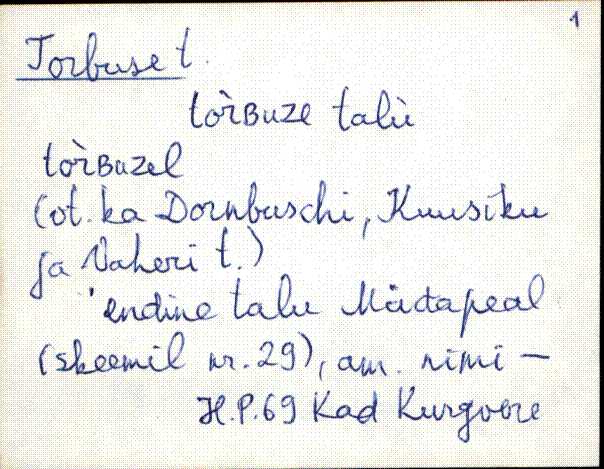 1
Torbuse t.
tòrʙuze talù
tòrʙuzel
(ot. ka Dornbuschi, Kuusiku
ja Vaheri t.)
'endine talu Mädapeal
(skeemil nr. 29), am. nimi —
H.P. 69 Kad Kurgvere